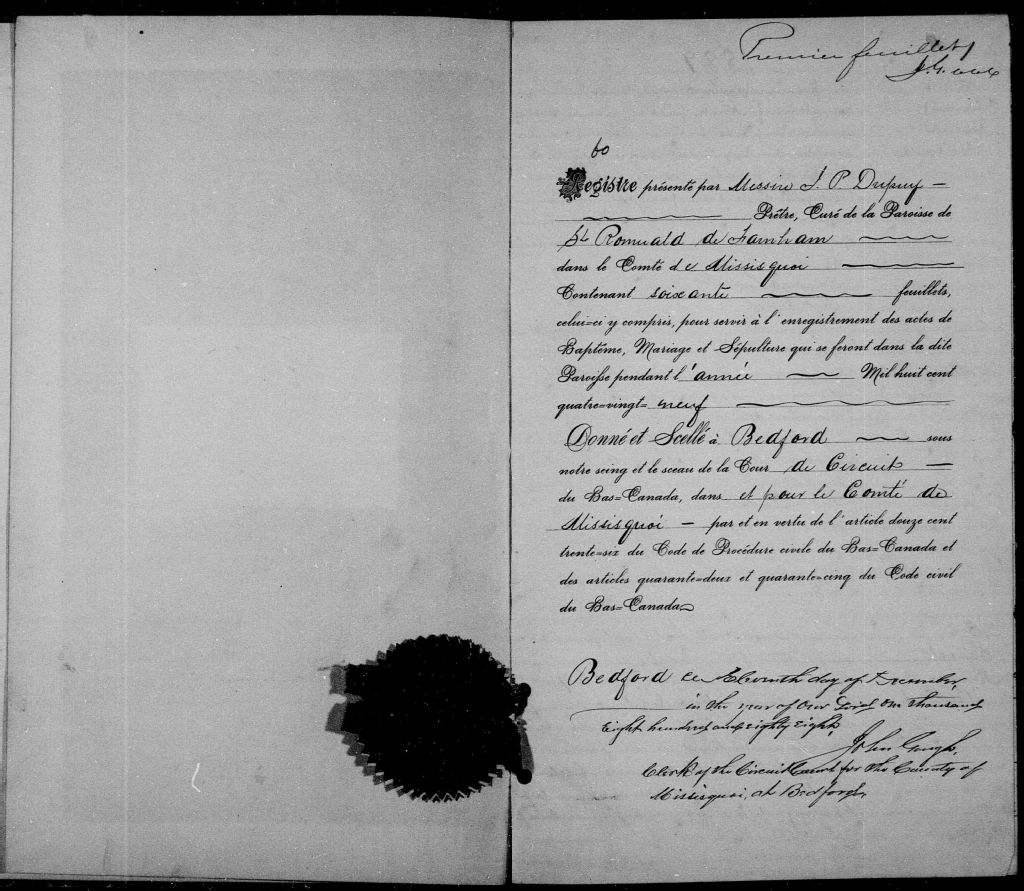 Premier feuillet
J. G. ccc
60
Registre présenté par Messire J. P. Dupuy
Prêtre, Curé de la Paroisse de
St Romuald de Farnham
dans le Comté de Missisquoi
Contenant soixante feuillets,
celui=ci y compris, pour servir à l'enregistrement des actes de
Baptême, Mariage et Sépulture qui se feront dans la dite
Paroisse pendant l'année Mil huit cent
quatre=vingt= neuf
Donné et Scellé à Bedford sous
notre seing et le sceau de la Cour de Circuit
du Bas=Canada, dans et pour le Comté de
Missisquoi par et en vertu de l'article douze cent
trente=six du Code de Procédure civile du Bas=Canada et
des articles quarante=deux et quarante=cinq du Code civil
du Bas=Canada
Bedford ce Eleventh day of December,
in the year of Our Lord One thousand
Eight hundred and Eighty Eight,
John Gough,
Clerk of the Circuit Court for the County of
Missisquoi, at Bedford,